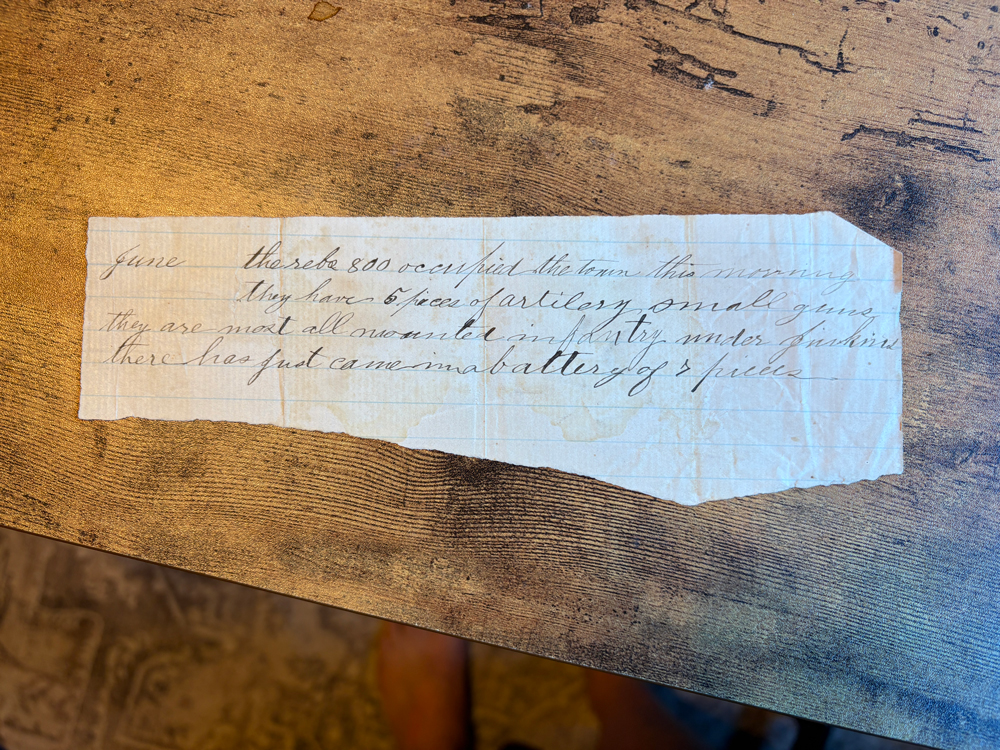 June the rebs 800 occupied the town this morning
they have 5 pieces of artilery small guns,
they are most all mounted infantry under Jinkins
there has just came in a battery of 7 pieces.